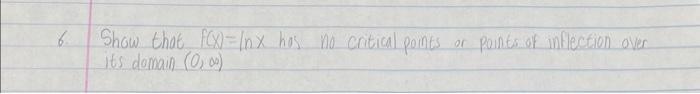 6. Show that f(x)=lnx has no critical points or points of inflection over
its domain (0,∞)